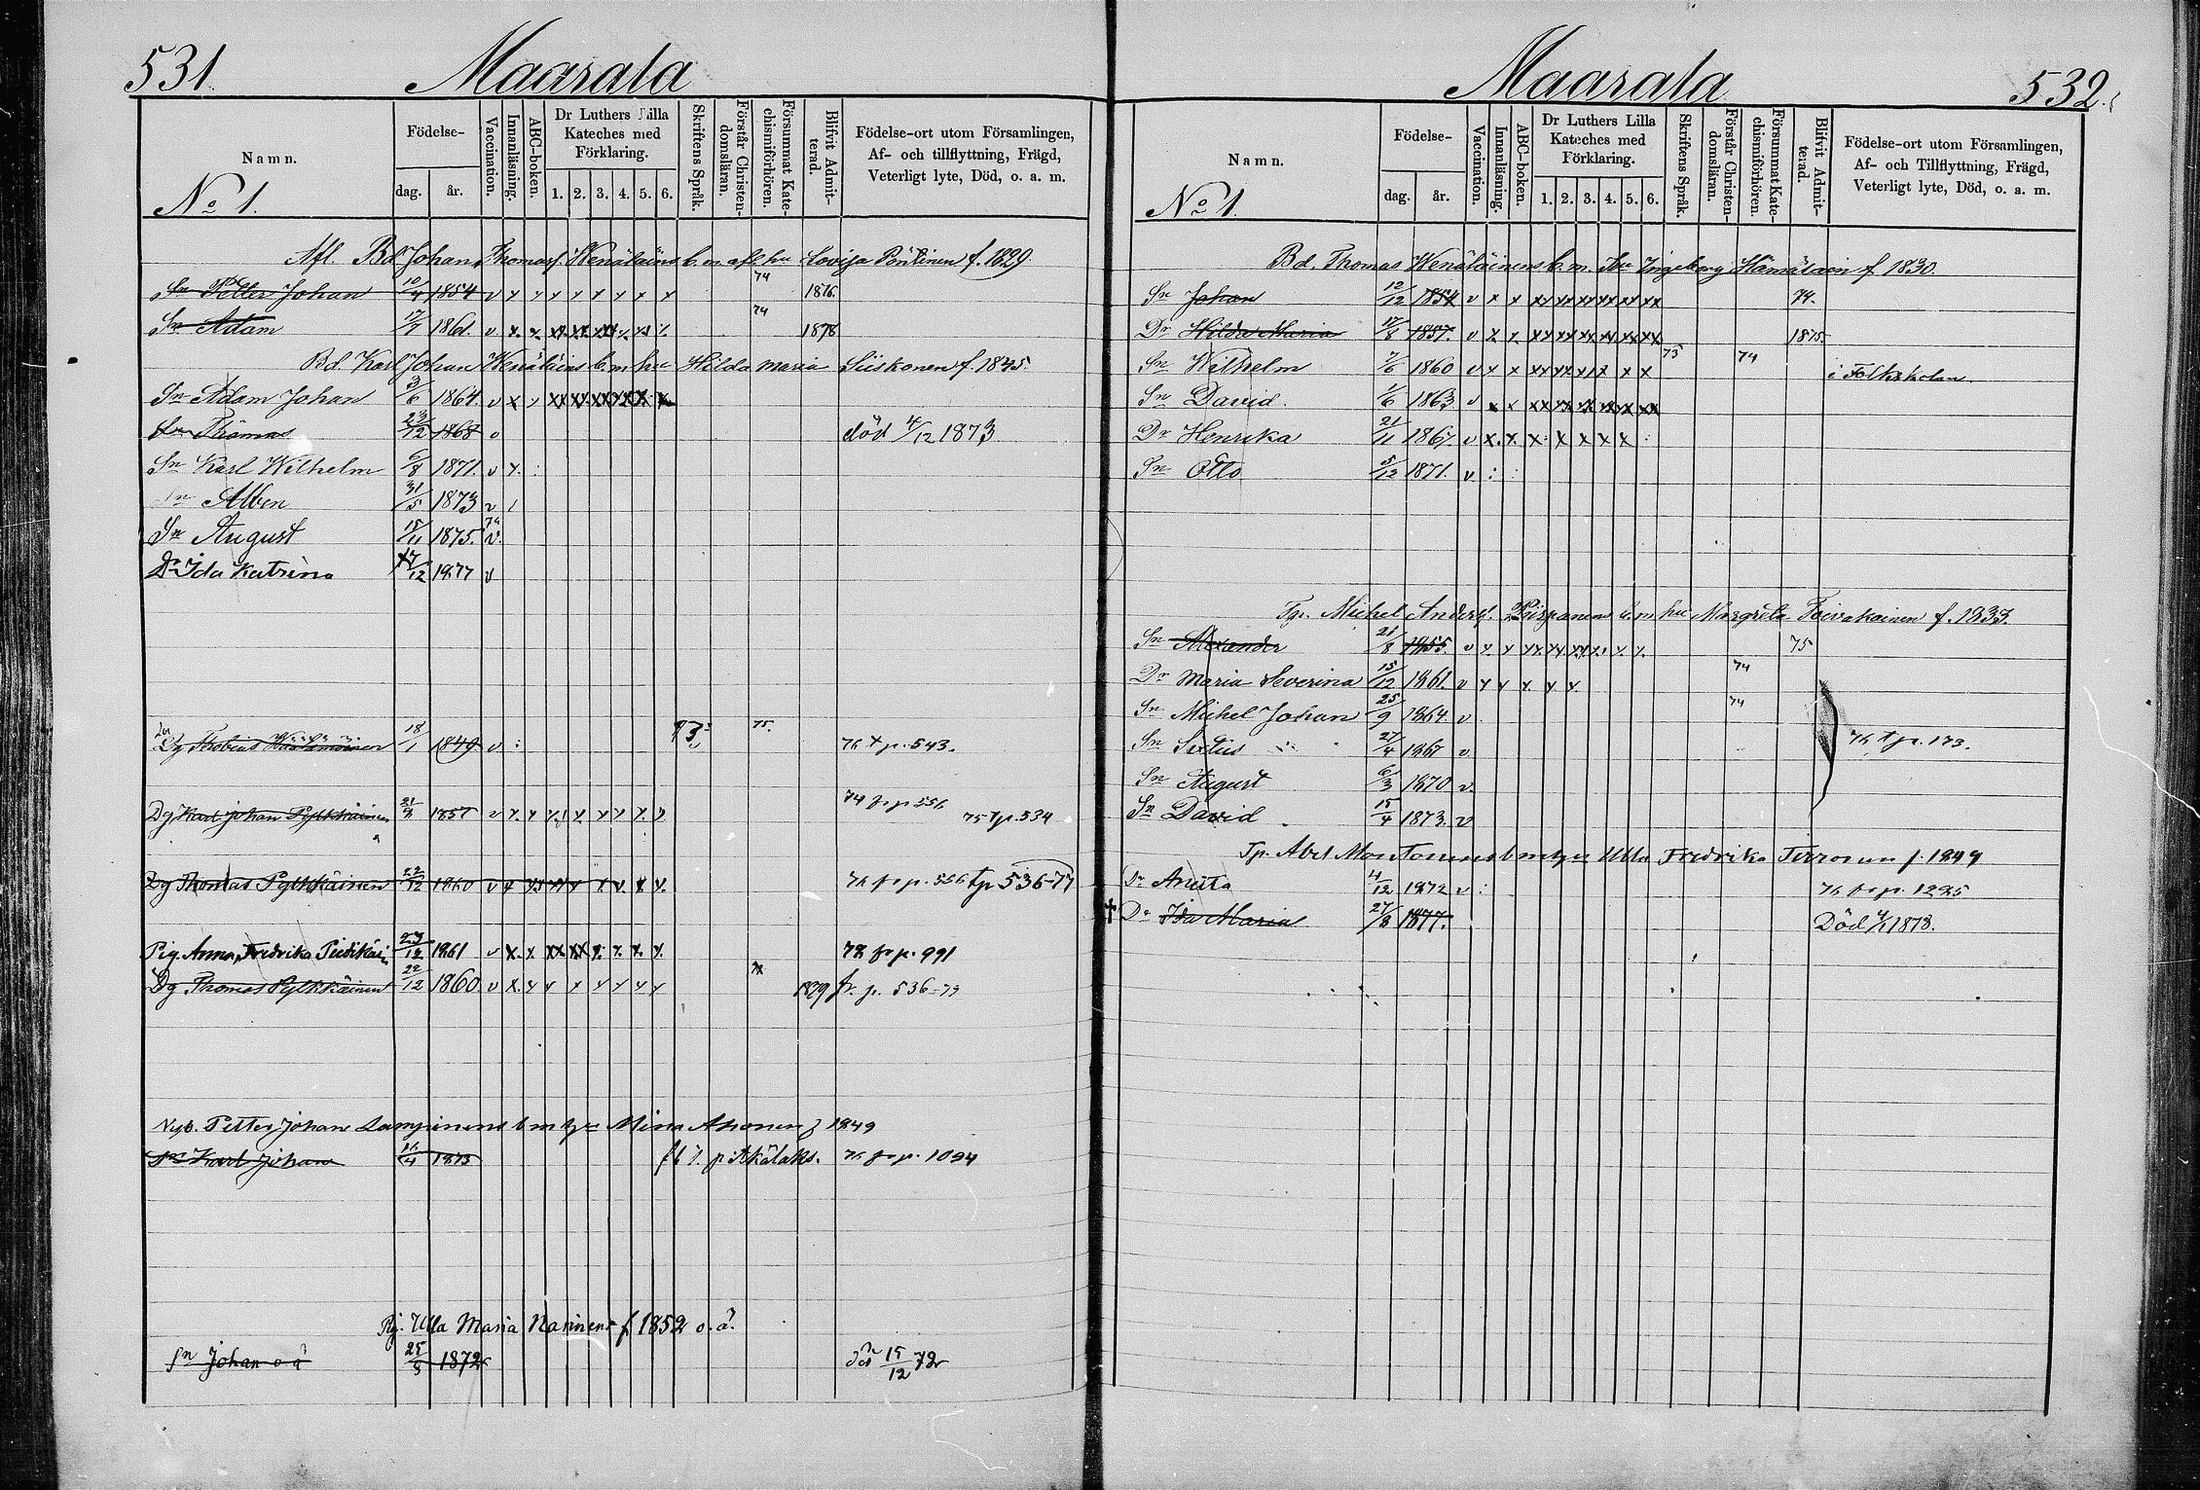 531. Maarala
Namn.
No 1.
Födelse-
dag. år.
Vaccination.
Innanläsning.
ABC-boken.
Dr Luthers Lilla Kateches med Förklaring.
1. 2. 3. 4. 5. 6.
Skriftens Språk.
Förstår Christen-domsläran.
Försummat Kate-chismiförhören.
Blifvit Admit-terad.
Födelse-ort utom Församlingen,
Af- och tillflyttning, Frägd,
Veterligt lyte, Död, o. a. m.
Afl. Bd. Johan Thomasf. Wenäläins b. m. afl. hu Lovisa Pöntinen f. 1829
Sn Petter Johan 10/4 1854 v x x x x x x x x 74 1876.
Sn Adam 17/7 1861. v x x xx xx xx x x x 74 1878
Bd. Karl Johan Wenäläins b. m. hu Hilda Maria Siiskonen f. 1845.
Sn Adam Johan 3/6 1864. v x x xx xx xx xx xx x
Sn Thomas 23/12 1868 v död 4/12 1873
Sn Karl Wilhelm 6/8 1871. v x :
Sn Alben 31/5 1873 v /
Sn August 15/11 1875. v.
Dr Ida Katrina 17/12 1877 v
Dg Thobias 18/1 1849 v : 73 75. 76 t p. 543.
Dg Karl Johan Pylkkäinen 21/8 1857 v x x x x x x x x 74 fr p. 556 75 t p. 534
Dg Thomas Pylkkäinen 22/12 1860 v x x x x x x x x 76 fr p. 556 tp 536-77
Pig. Anna Fredrika 23/12 1861 v x x xx xx x x x x 78 fr p. 991
Dg Thomas Pylkkäinen 22/12 1860. v x x x x x x x x 1879 fr. p. 536-79
Petter Johan Lampinens b m hu Mina Ahonen f 1849
Sn Karl Johan 1873 76 fr p. 1094
Pig. Ulla Maria Narinen f 1852 o. ä.
Sn Johan o ä 25/8 1872 död 15/12 72
Maarala 532.
Namn.
No 1.
Födelse-
dag. år.
Vaccination.
Innanläsning.
ABC-boken.
Dr Luthers Lilla Kateches med Förklaring.
1. 2. 3. 4. 5. 6.
Skriftens Språk.
Förstår Christen-domsläran.
Försummat Kate-chismiförhören.
Blifvit Admit-terad.
Födelse-ort utom Församlingen,
Af- och Tillflyttning, Frägd,
Veterligt lyte, Död, o. a. m.
Bd. Thomas Wenäläinens b. m. hu Ingeborg Hämäläin f. 1830.
Sn Johan 12/12 1854 v x x xx xx xx xx xx xx 74.
Dr Hilda Maria 17/8 1857. v x x xx xx xx xx xx xx 1875.
Sn Wilhelm 7/6 1860 v x x xx xx x x x x 73 74 i Folkskolan
Sn David. 1/6 1863 v x x xx xx xx xx x xx
Dr Henrika 21/11 1867. v x. x. x x x x x :
Sn Otto 5/12 1871. v. : :
Tp. Michel Andersf. b. m. hu Margreta Toivakainen f. 1833.
Sn Alexander 21/8 1855. v x x xx xx xx x x x 75
Dr Maria Severina 15/12 1861. v x x x x x 74
Sn Michel Johan 25/9 1864. v 74
Sn 27/4 1867 v 76 t p. 173.
Sn August 6/3 1870 v
Sn David 15/4 1873. v
Tp. Abel b m hu Ulla Fredrika f. 1849
Dr Anitta 4/12 1872 v : 76 fr p. 1295
† Dr Ida Maria 27/8 1877. Död 4/1 1878.